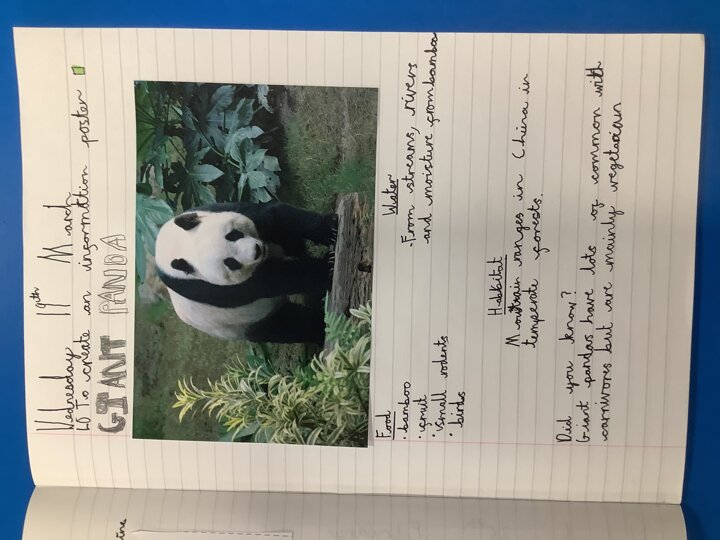 Wednesday 19th March
LO To create an information poster
GIANT PANDA
Food
• bamboo
• fruit
• small rodents
• birds
Water
• From streams, rivers
and moisture from bamboo
Habitat
Mountain ranges in China in
temperate forests.
Did you know?
Giant pandas have lots of common with
carnivores but are mainly vegetarian